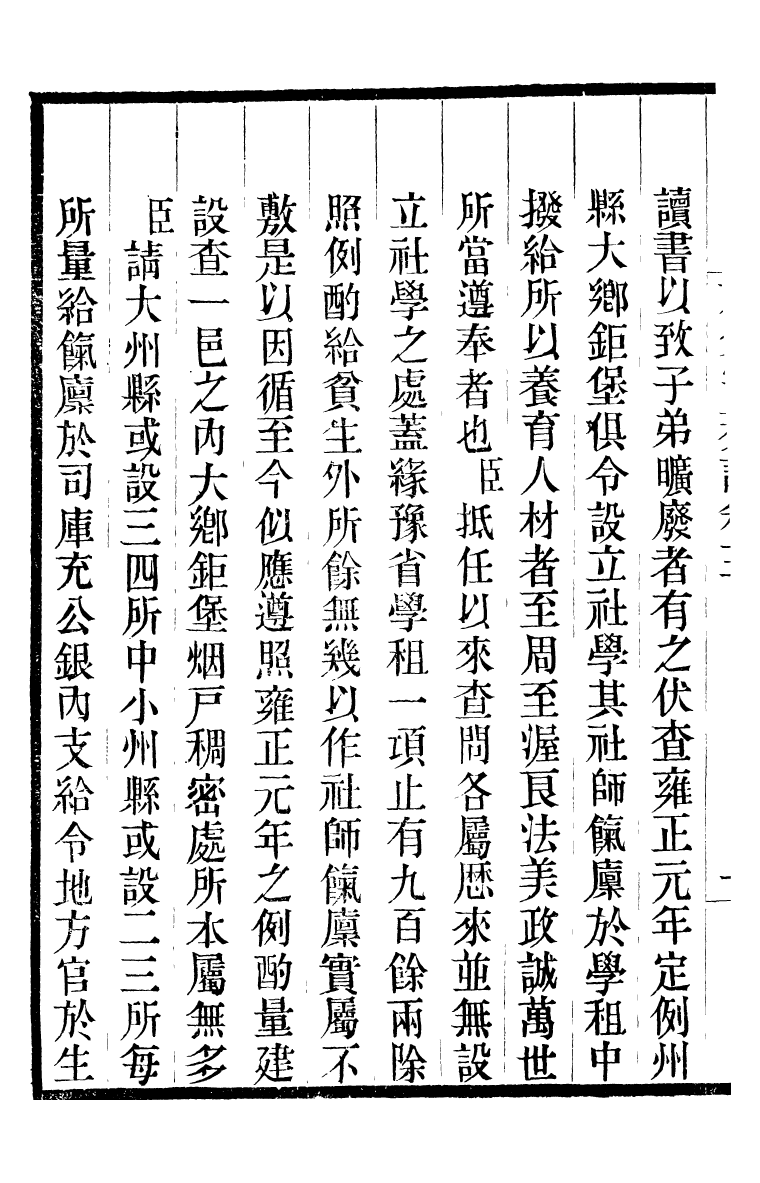 讀書以致子弟曠廢者有之伏查雍正元年定例州
縣大鄉鉅堡俱令設立社學其社師餼廩於學租中
撥給所以養育人材者至周至渥良法美政誠萬世
所當遵奉者也臣抵任以來查問各屬歷來並無設
立社學之處蓋緣豫省學租一項止有九百餘兩除
照例酌給貧生外所餘無幾以作社師餼廩實屬不
敷是以因循至今似應遵照雍正元年之例酌量建
設查一邑之內大鄉鉅堡烟戸稠密處所本屬無多
臣請大州縣或設三四所中小州縣或設二三所每
所量給餼廩於司庫充公銀內支給令地方官於生